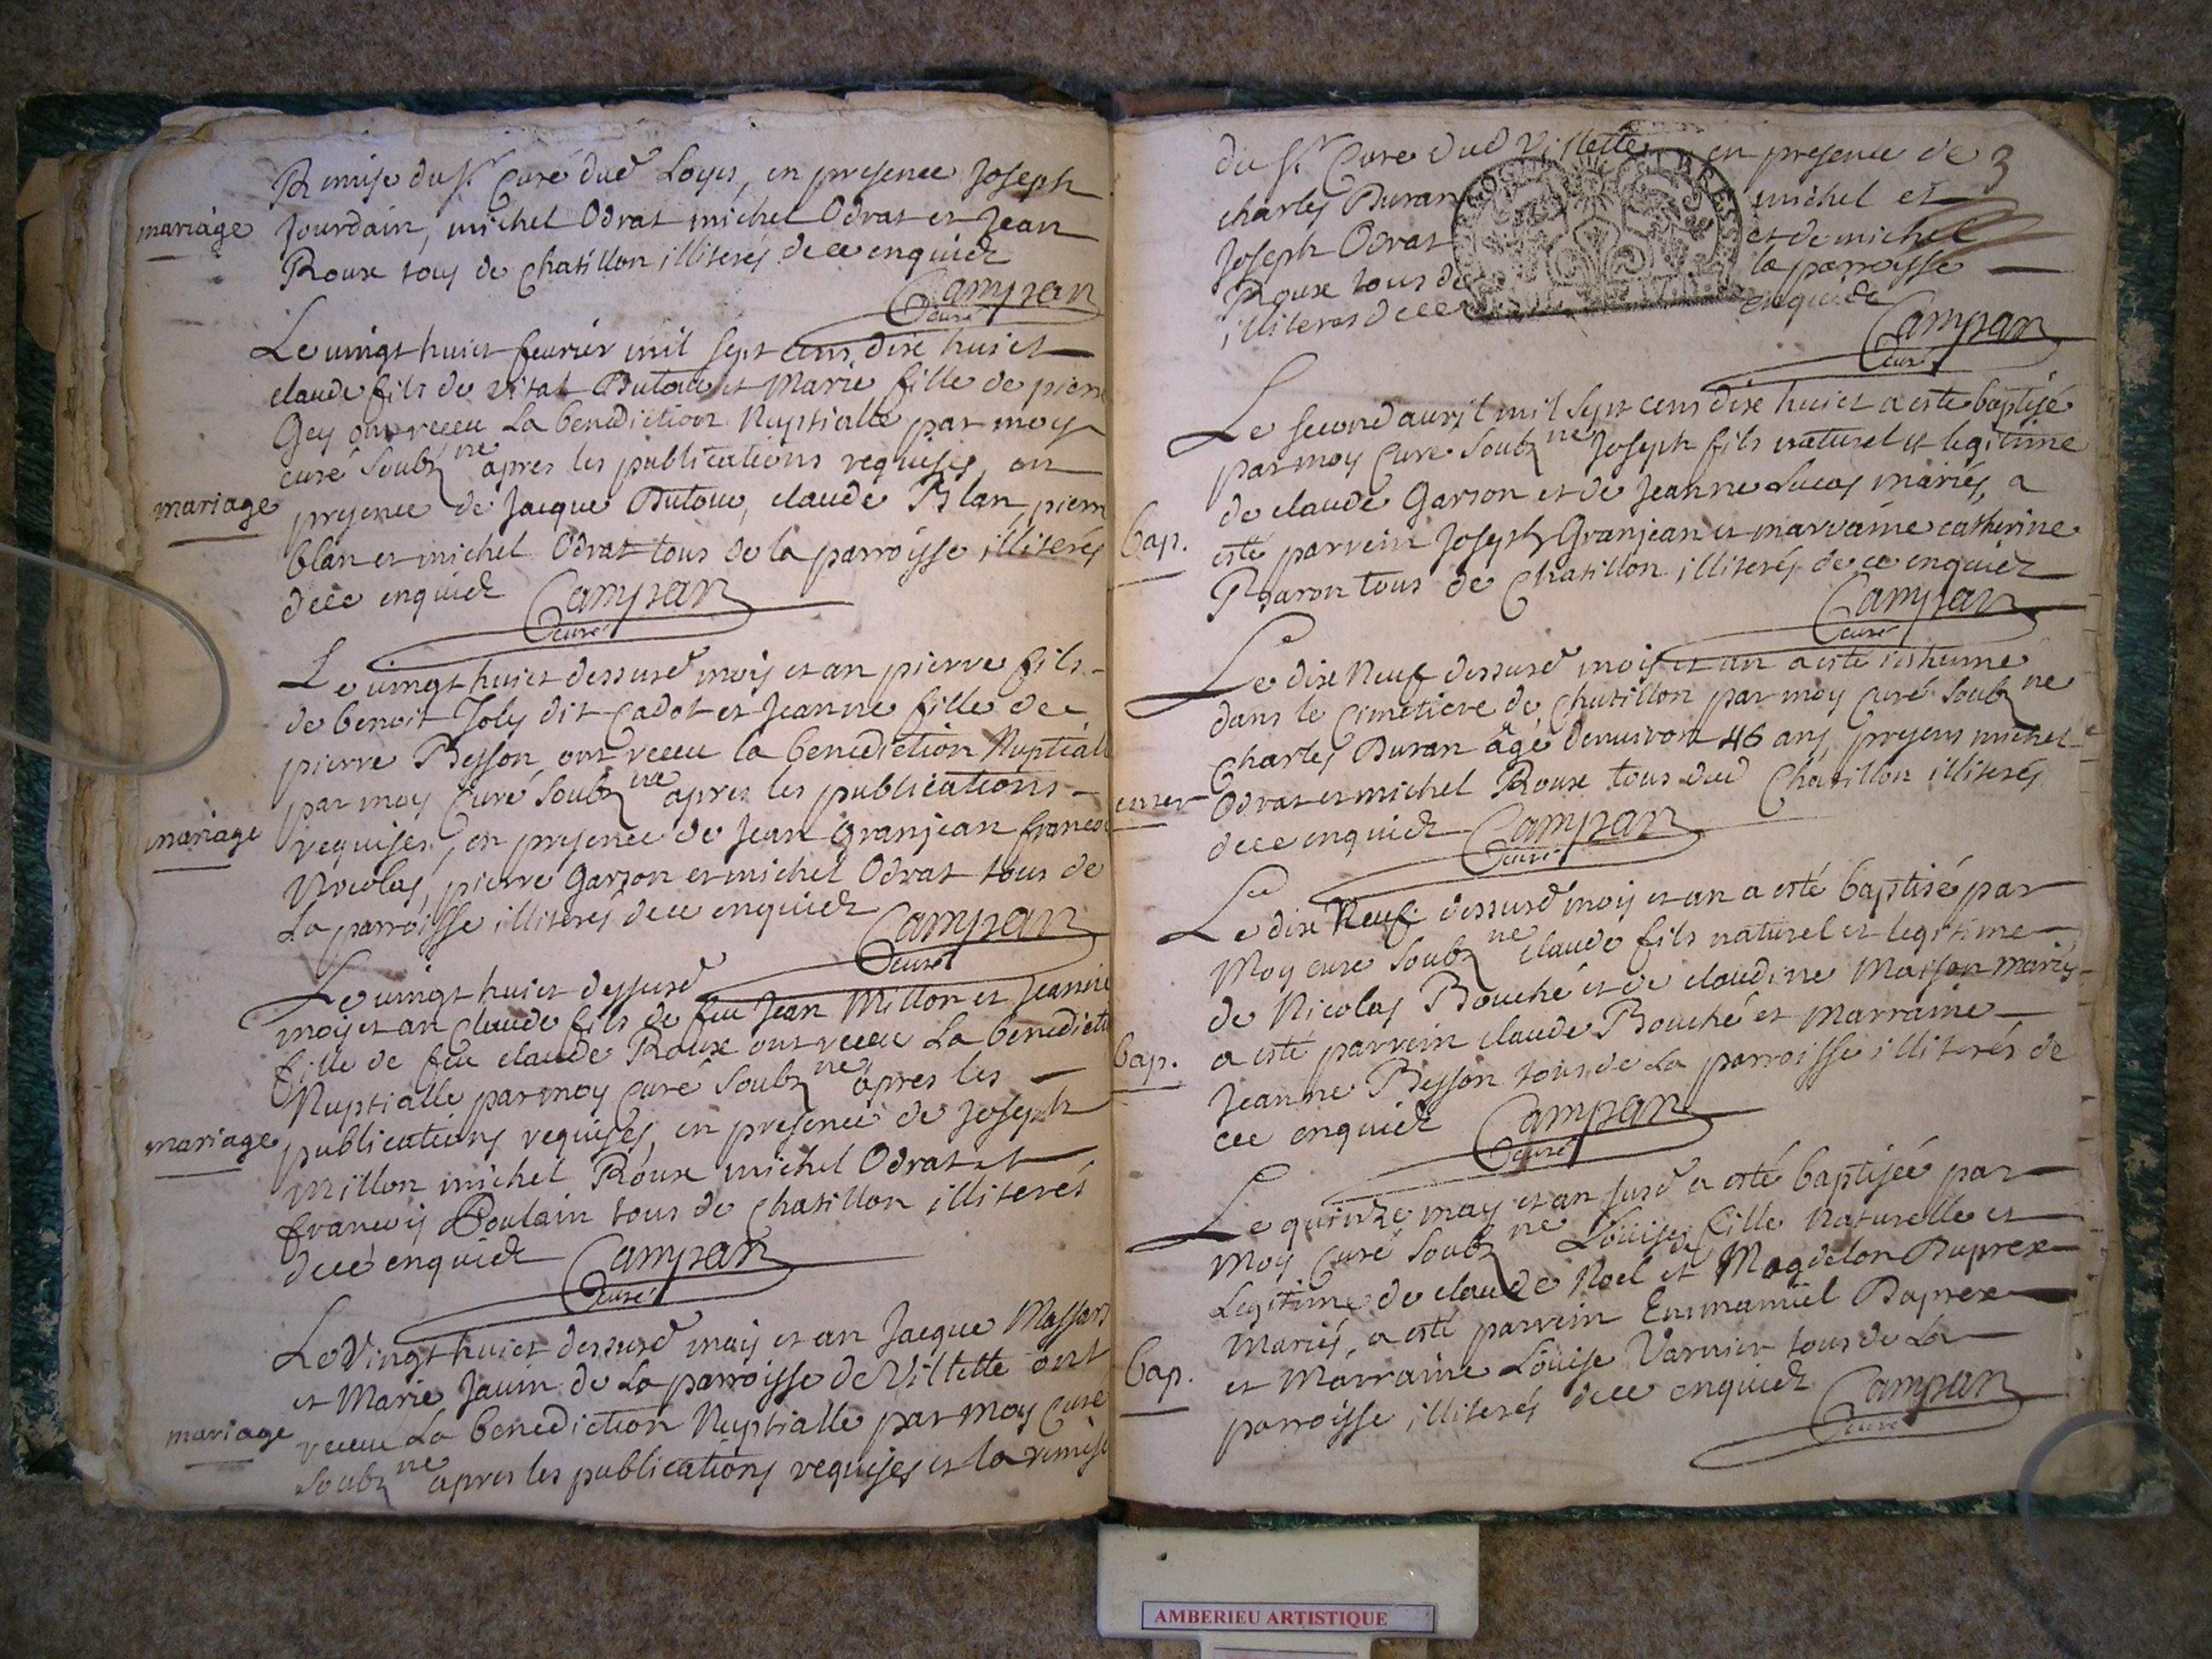 Remise du Sr Curé dud Loyes, en presence Joseph
mariage
Jourdain, michel Odrat michel Odrat et Jean
Roux tous de Chatillon illiterés de ce enquich
Campan
curé
Le vingt huict feurier mil sept cens dixe huict
claude fils de vital Dutour et Marie fille de pierre
Gey ont receu La benediction Nuptialle par moy
curé Soubz ne apres les publications requises, en
mariage
presence de Jacque Dutour, claude Blan, pierre
blan et michel Odrat tous de la parroisse illiterés
dece enquich Campan
curé
Le vingt huict dessusd mois et an pierre fils
de benoit Joly dit Cadot et Jeanne fille de
pierre Besson ont receu la benediction Nuptialle
par moy Curé Soubz ne apres les publications
mariage
requises, en presence de Jean Granjean francois
Nicolas, pierre Garson et michel Odrat tous de
La parroisse illiterés dece enquich Campan
curé
Le vingt huict dessusd
mois et an Claude fils de feu Jean Millon et Jeanne
fille de feu claude Roux ont receu La benediction
Nuptialle par moy Curé Soubz ne apres les
mariage
publications requises, en presence de Joseph
Millon michel Roux michel Odrat et
francois Poulain tous de Chatillon illiterés
dece enquich Campan
curé
Le Vingt huict dessusd mois et an Jacque Massard
et Marie Janin de La parroisse de Villette ont
mariage
receu La benediction Nuptialle par moy Curé
Soubz ne apres les publications requises et la remise
du Sr Curé dud Villette en presence de 3
charles Duran michel et
Joseph Odrat et de michel
Roux tous de la parroisse
illiteres dece enquich
Campan
curé
Le second auril mil sept cens dixe huict a esté baptisé
par moy Curé Soubz ne Joseph fils naturel et legitime
de claude Garson et de Jeanne Lucas mariés, a
bap.
esté parrein Joseph Granjean et marraine catherine
Baron tous de Chatillon illiterés de ce enquich
Campan
curé
Le dixe Neuf dessusd mois et an a esté inhumé
dans le Cimetiere de Chatillon par moy Curé Soubz ne
Charles Duran âgé denuiron 46 ans, presens michel
enter
Odrat et michel Roux tous dud Chatillon illiterés
dece enquich Campan
curé
Le dixe Neuf dessusd mois et an a esté baptisé par
Moy curé Soubz ne claude fils naturel et legitime
de Nicolas Bouché et de claudine Maison mariés
bap.
a esté parrein claude Bouché et Marraine
Jeanne Besson tous de La parroisse illiterés de
cee enquich Campan
curé
Le quinze may et an susd a esté baptisée par
Moy Curé Soubz ne Louise fille Naturelle et
Legitime de claude Noel et de Magdelon Duprex
Mariés, a esté parrein Emmanuel Duprex
bap.
et Marraine Louise Varnier tous de La
parroisse illiterés dece enquich Campan
curé
AMBERIEU ARTISTIQUE